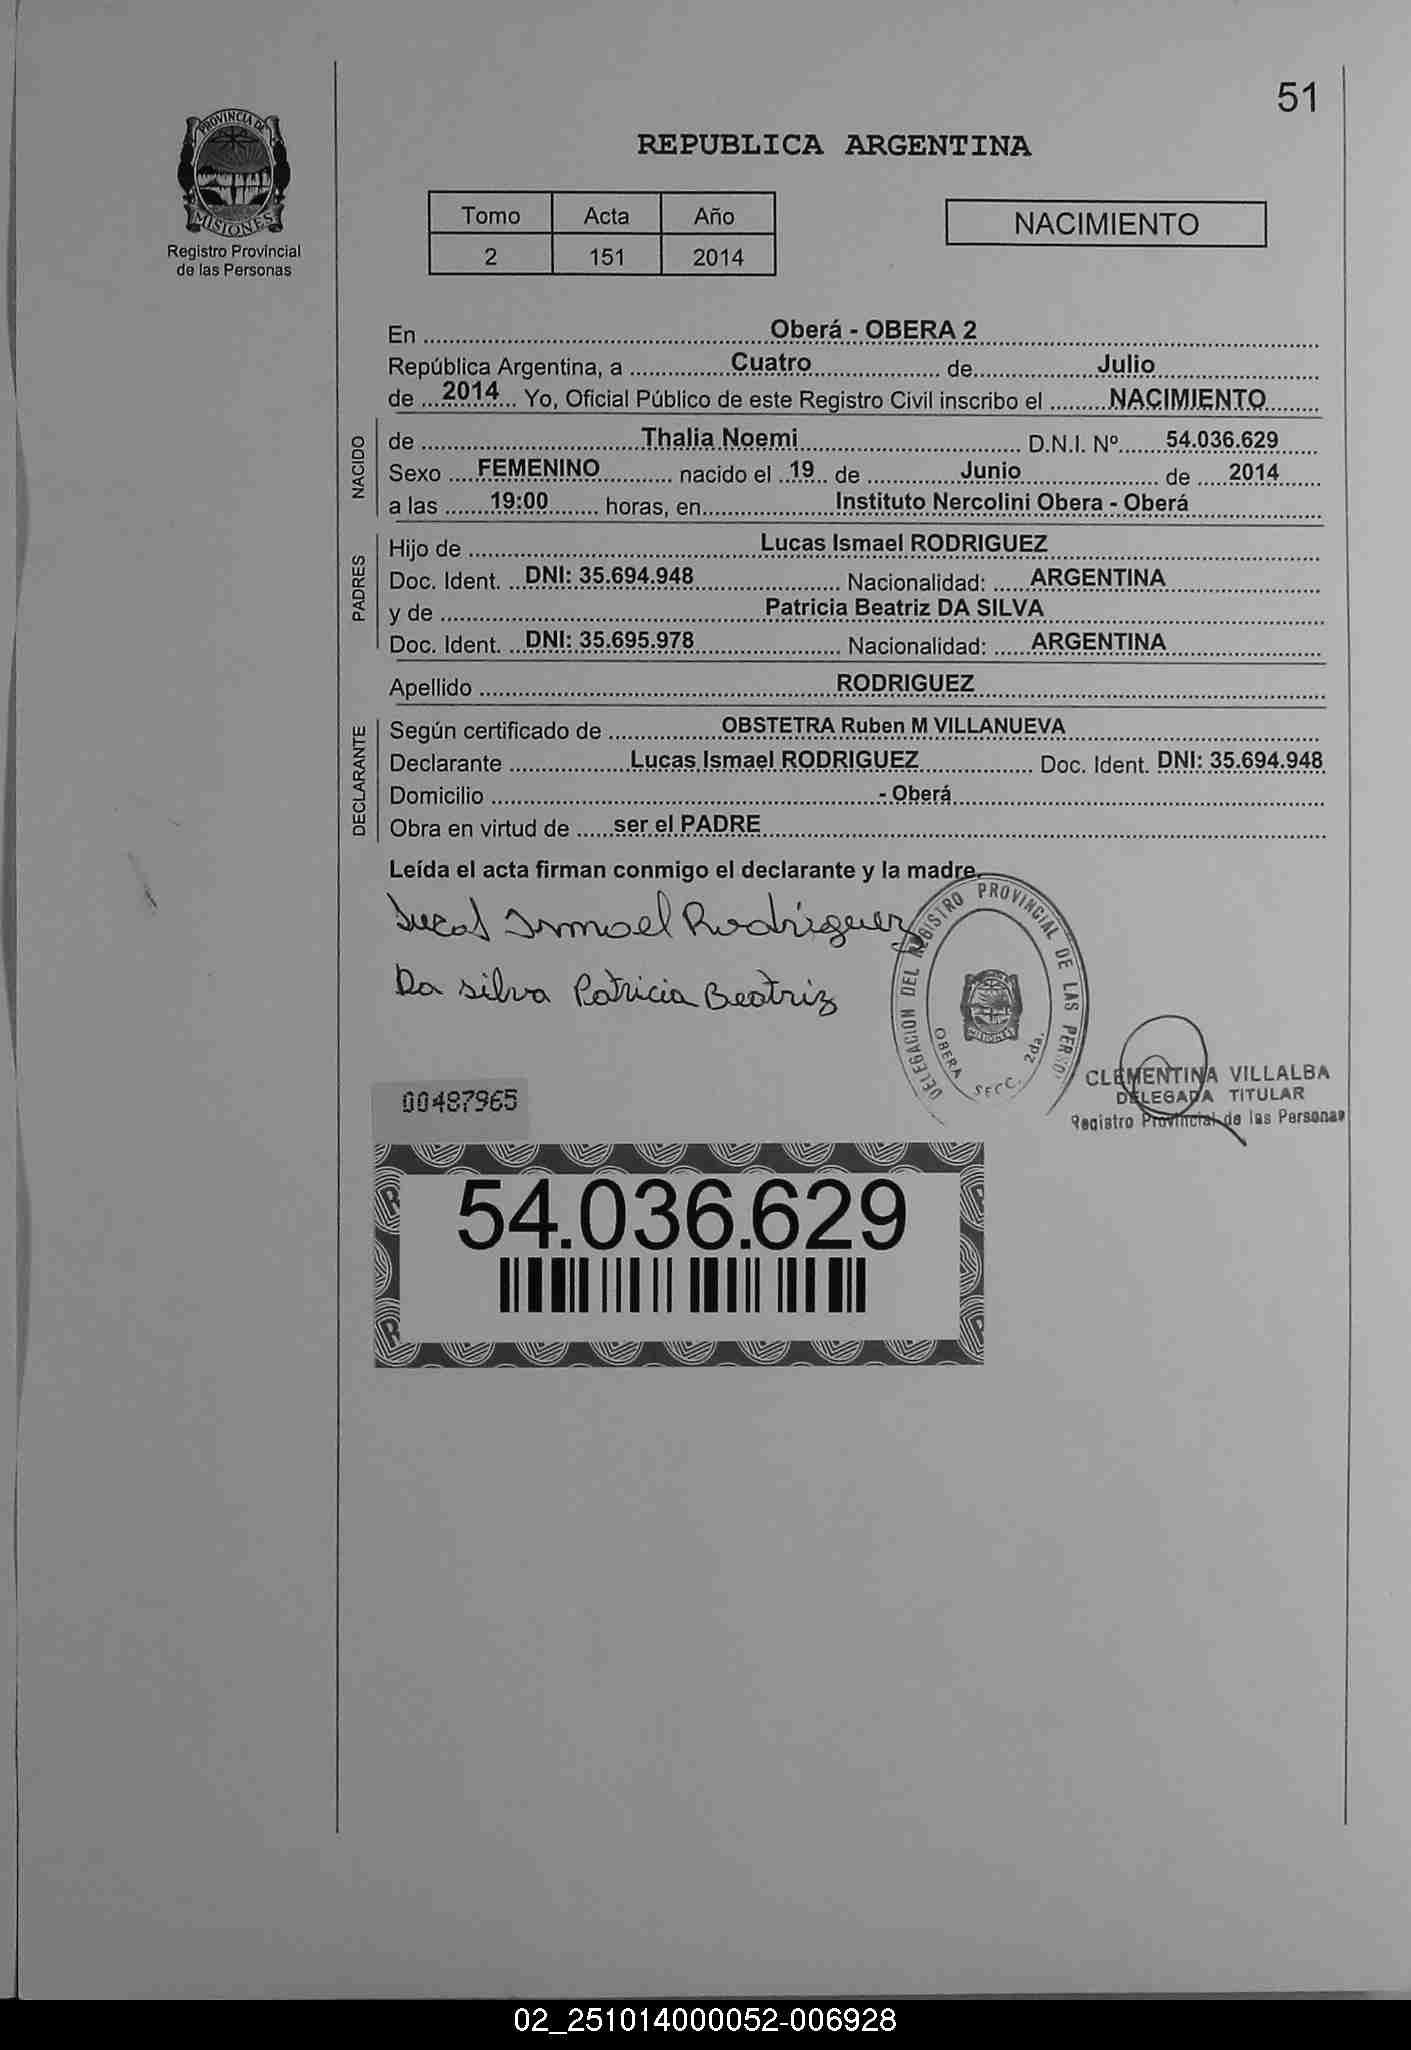 51
PROVINCIA DE
MISIONES
Registro Provincial
de las Personas
REPUBLICA ARGENTINA
Tomo Acta Año
2 151 2014
NACIMIENTO
En Oberá - OBERA 2
República Argentina, a Cuatro de Julio
de 2014 Yo, Oficial Público de este Registro Civil inscribo el NACIMIENTO
NACIDO
de Thalia Noemi D.N.I. Nº 54.036.629
Sexo FEMENINO nacido el 19 de Junio de 2014
a las 19:00 horas, en Instituto Nercolini Obera - Oberá
PADRES
Hijo de Lucas Ismael RODRIGUEZ
Doc. Ident. DNI: 35.694.948 Nacionalidad: ARGENTINA
y de Patricia Beatriz DA SILVA
Doc. Ident. DNI: 35.695.978 Nacionalidad: ARGENTINA
Apellido RODRIGUEZ
DECLARANTE
Según certificado de OBSTETRA Ruben M VILLANUEVA
Declarante Lucas Ismael RODRIGUEZ Doc. Ident. DNI: 35.694.948
Domicilio - Oberá
Obra en virtud de ser el PADRE
Leída el acta firman conmigo el declarante y la madre.
Lucas Ismael Rodriguez
Da silva Patricia Beatriz
DELEGACION DEL REGISTRO PROVINCIAL DE LAS PERSO
OBERA SECC. 2da.
MISIONES
CLEMENTINA VILLALBA
DELEGADA TITULAR
Registro Provincial de las Personas
00487965
54.036.629
02_251014000052-006928